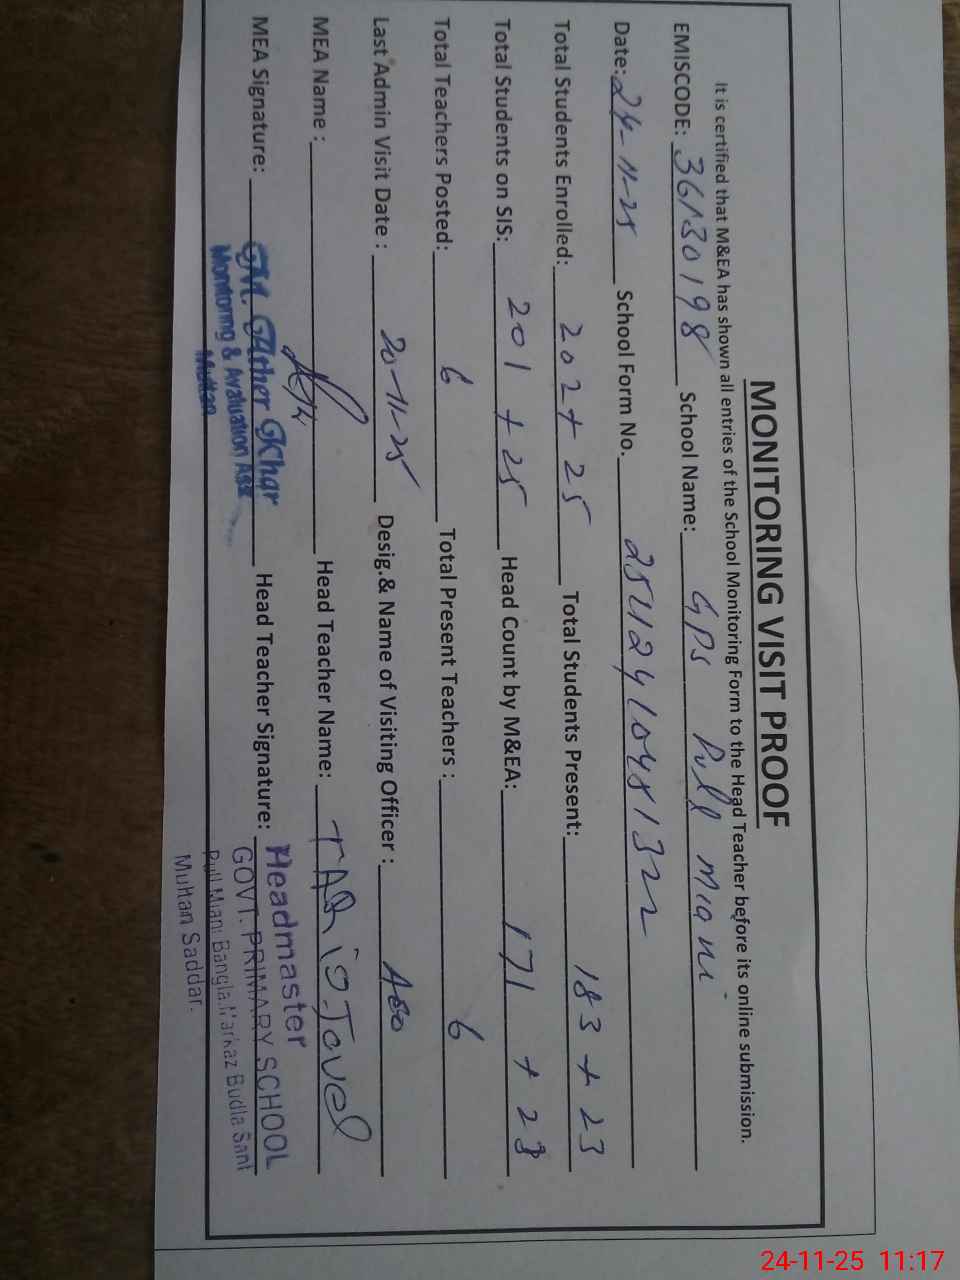 MONITORING VISIT PROOF
It is certified that M&EA has shown all entries of the School Monitoring Form to the Head Teacher before its online submission.
EMISCODE: 36130198 School Name: GPS Pull Miani
Date: 24-11-25 School Form No.
Total Students Enrolled: 202 + 25 Total Students Present: 183 + 23
Total Students on SIS: 201 + 25 Head Count by M&EA: 171 + 23
Total Teachers Posted: 6 Total Present Teachers : 6
Last Admin Visit Date : 20-11-25 Desig.& Name of Visiting Officer : AEO
MEA Name : Head Teacher Name: TARIQ Javed
MEA Signature: Head Teacher Signature:
M. Ather Khar
Monitoring & Avaluation Ass
Multan
Headmaster
GOVT. PRIMARY SCHOOL
Pull Miani Bangla.Markaz Budla Sant
Multan Saddar.
24-11-25 11:17